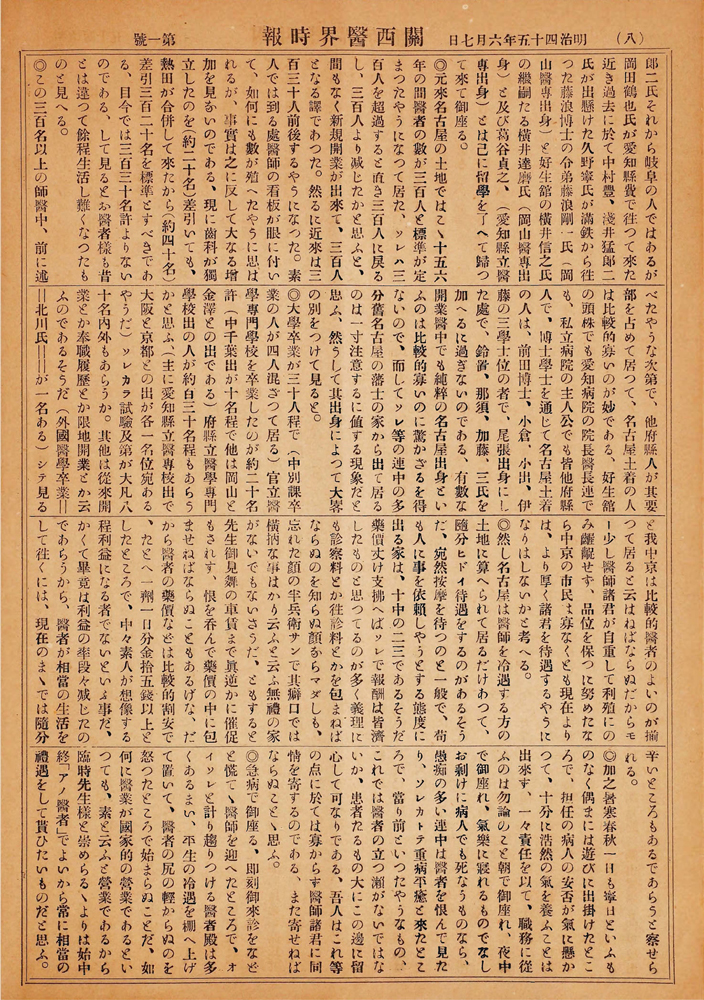 （八）
明治四十五年六月七日
關西醫界時報
第一號
郎二氏それから岐阜の人ではあるが
岡田鶴也氏が愛知縣費で往つて來た
近き過去に於て中村豊、淺井猛郎二
氏が出懸けた久野寧氏が滿鐵から往
つた藤浪博士の令弟藤浪剛一氏（岡
山醫專出身）と好生館の橫井信之氏
の繼嗣たる橫井達磨氏（岡山醫專出
身）と及び葛谷貞之、（愛知縣立醫
專出身）とは已に留學を了へて歸つ
て來て御座る。
◎元來名古屋の土地ではこゝ十五六
年の間醫者の數が三百人と標準が定
まつたやうになつて居た、ソレハ三
百人を超過すると直き三百人に戻る
し、三百人より減じたかと思ふと、
間もなく新規開業が出來て、三百人
となる譯であつた。然るに近來は三
百三十人前後するやうになつた。素
人では到る處醫師の看板が眼に付い
て、如何にも數が殖へたやうに思は
れるが、事實は之に反して大なる增
加を見ないのである、現に齒科が獨
立したのを（約二十名）差引いても、
熱田が合併して來たから（約四十名）
差引三百二十名を標準とすべきであ
る、目今では三百三十名許よりない
のである、して見るとお醫者樣も昔
とは違つて餘程生活し難くなつたも
のと見へる。
◎この三百名以上の師醫中、前に述
べたやうな次第で、他府縣人が其要
部を占めて居つて、名古屋土着の人
は比較的寡いのが妙である、好生館
の頭株でも愛知病院の院長醫長連で
も、私立病院の主人公でも皆他府縣
人で、博士學士を通じて名古屋土着
の人は、前田博士、小倉、小出、伊
藤の三學士位の者で、尾張出身にし
た處で、鈴置、那須、加藤、三氏を
加へるに過ぎないのである、有數な
開業醫中でも純粹の名古屋出身とい
ふのは比較的寡いのに驚かざるを得
ないので、而してソレ等の連中の多
分舊名古屋の藩士の家から出て居る
のは一寸注意するに値する現象だと
思ふ、然うして其出身によつて大畧
の別をつけて見ると。
◎大學卒業が三十人程で（中別課卒
業の人が四人混ざつて居る）官立醫
學專門學校を卒業したのが約二十名
許（中千葉出が十名程で他は岡山と
金澤との出である）府縣立醫學專門
學校出の人が約百三十名程もあらう
かと思ふ、（主に愛知縣立醫專校出で
大阪と京都との出が各一名位宛ある
やうだ）ソレカラ試驗及第が大凡八
十名內外もあらうか。其他は從來開
業とか奉職履歷とか限地開業とか云
ふのであるそうだ（外國醫學卒業＝
＝北川氏＝＝が一名ある）シテ見る
と我中京は比較的醫者のよいのが揃
つて居ると云はねばならぬだからモ
ー少し醫師諸君が自重して利殖にの
み齷齪せず、品位を保つに努めたな
ら中京の市民は寡なくとも現在より
は、より厚く諸君を待遇するやうに
なりはしないかと考へる。
◎然し名古屋は醫師を冷遇する方の
土地に算へられて居るだけあつて、
隨分ヒドイ待遇をするのがあるそう
だ、宛然按摩を待つのと一般で、苟
も人に事を依賴しやうとする態度に
出る家は、十中の二三であるそうだ
藥價丈け支拂へばソレで報酬は皆濟
したものと思つてるのが多く義理に
も診察料とか往診料とかを包まねば
ならぬのを知らぬ顏からマダしも、
忘れた顏の半兵衞サンで其癖口では
橫抦な事はかり云ふと云ふ無禮の家
がないでもないさうだ、ともすると
先生御見舞の車賃まで眞逆かに催促
もされす、恨を呑んで藥價の中に包
ませねばならぬこともあるげな、だ
から醫者の藥價などは比較的割安で
、たとへ一劑一日分金拾五錢以上と
したところで、中々素人が想像する
程利益になる者でないといふ事だ、
かくて畢竟は利益の率段々減じたの
であらうから、醫者が相當の生活を
して往くには、現在のまゝでは隨分
辛いところもあるであらうと察せら
れる。
◎加之暑寒春秋一日も寧日といふも
のなく偶まには遊びに出掛けたとこ
ろで、担任の病人の安否が氣に懸か
つて、十分に浩然の氣を養ふことは
出來す、一々責任を以て、職務に從
ふのは勿論のこと朝で御座れ、夜中
で御座れ、氣樂に寢れるものでなし
お剩けに病人でも死なうものなら、
愚痴の多い連中は醫者を恨んで見た
り、ソレカトテ重病平癒と來たとこ
ろで、當り前といつたやうなもの、
これでは醫者の立つ瀨がないではな
いか、患者たるもの大にこの邊に留
心して可なりである、吾人はこれ等
の点に於ては寡からす醫師諸君に同
情を寄するのである、また寄せねば
ならぬことゝ思ふ。
◎急病で御座る、即刻御來診をなど
と慌てゝ醫師を迎へたところで、オ
イソレと計り趨りつける醫者殿は多
くあるまい、平生の冷遇を棚へ上げ
て置いて、醫者の尻の輕からぬのを
怒つたところで始まらぬことだ、如
何に醫業が國家的の營業であるとい
つても、素と云ふと營業であるから
臨時先生樣と崇めらるゝよりは始中
終「アノ醫者」でよいから常に相當の
禮遇をして貰ひたいものだと思ふ。